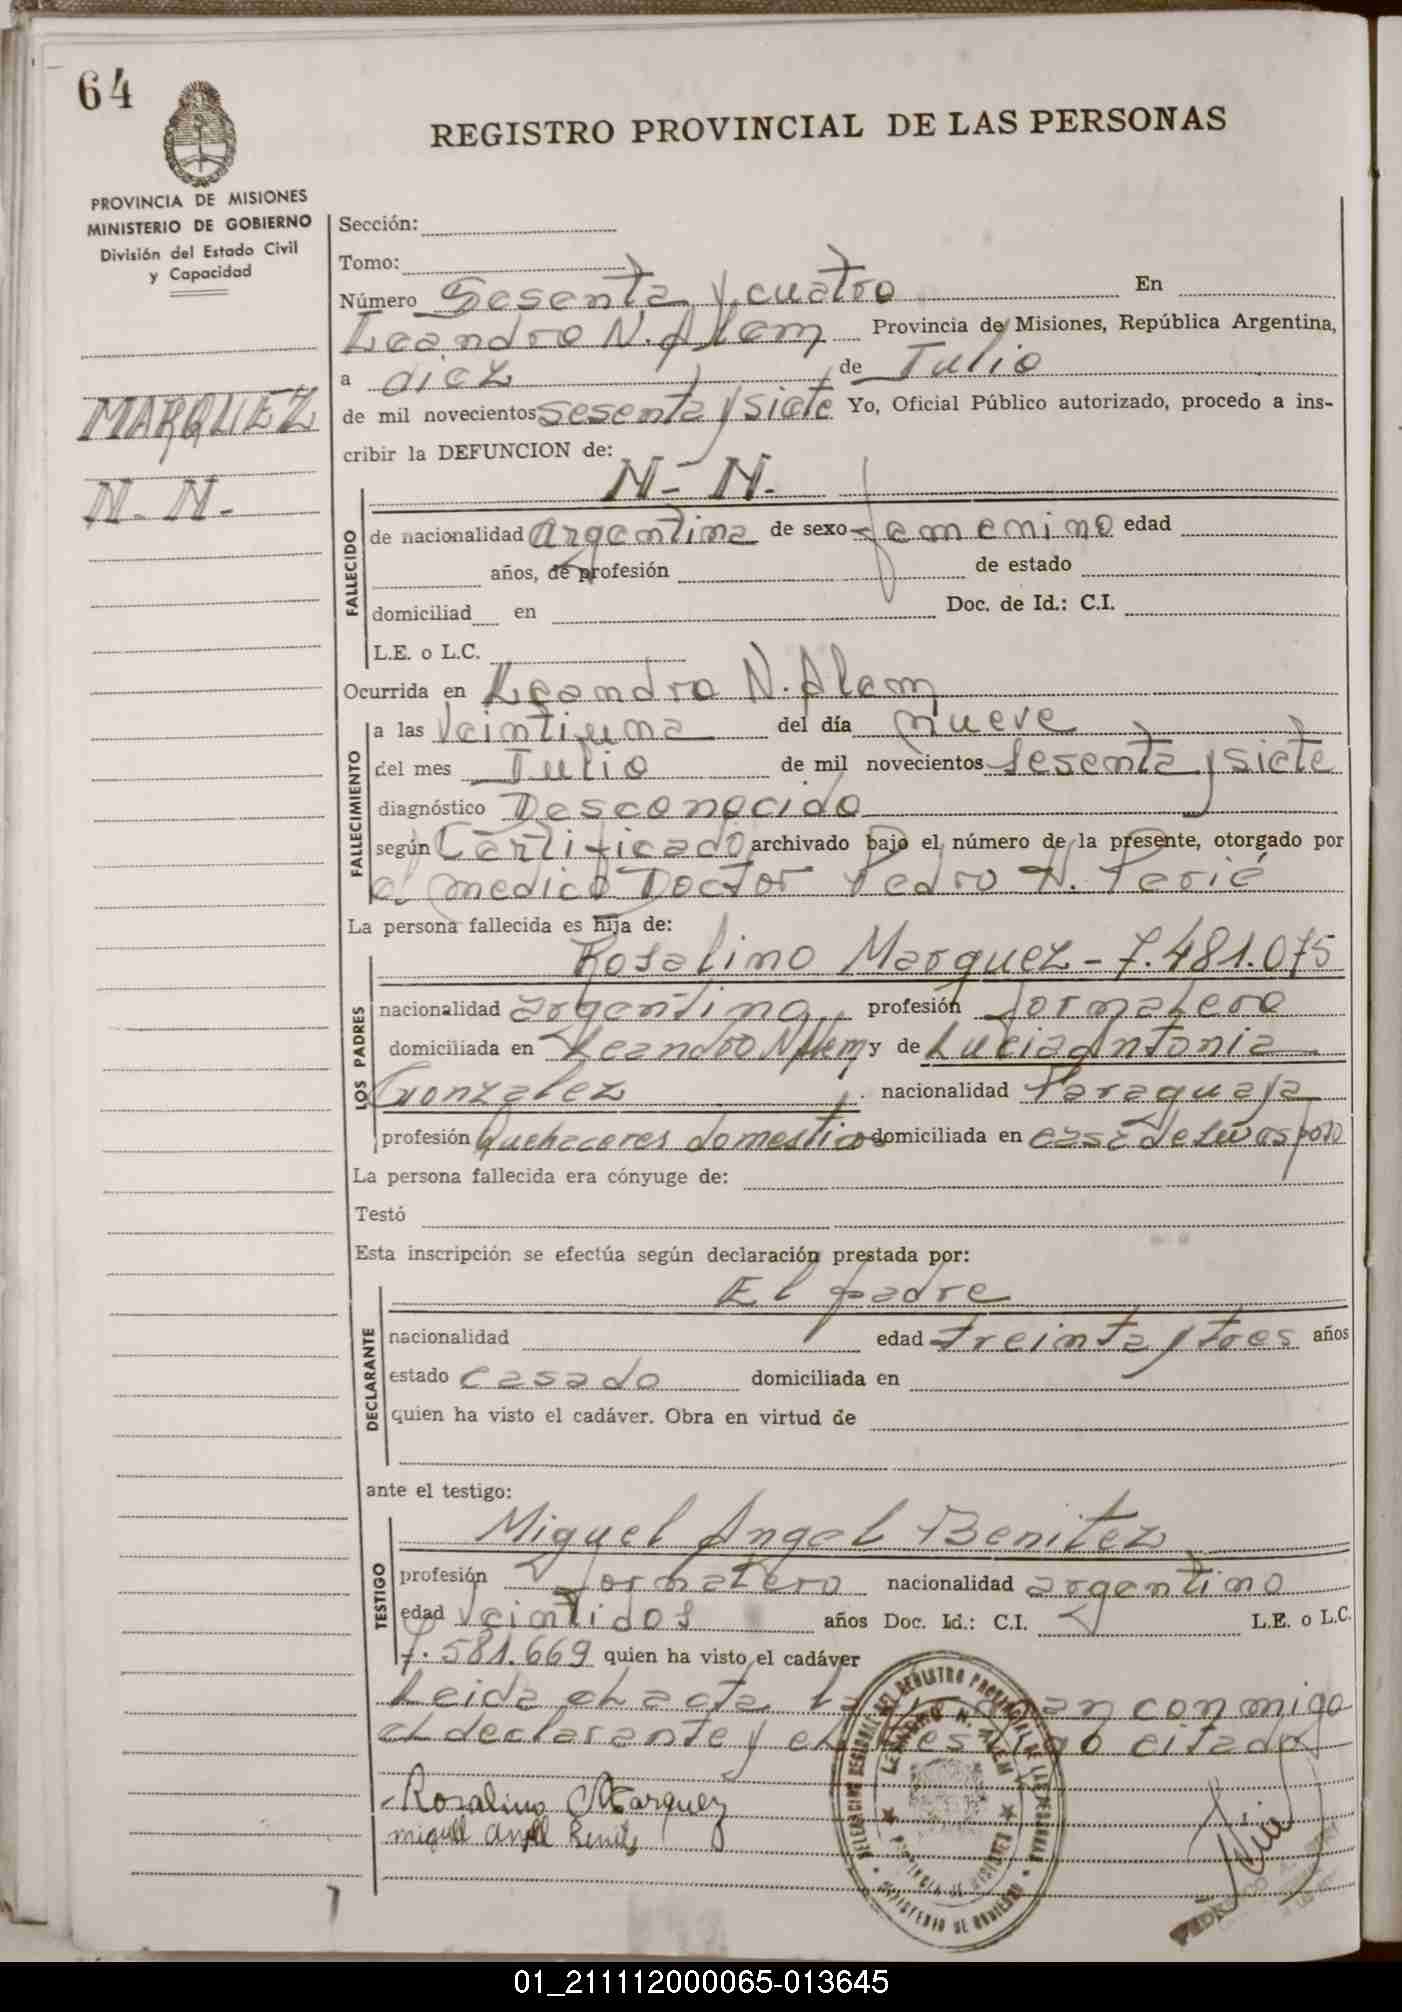 64
REGISTRO PROVINCIAL DE LAS PERSONAS
PROVINCIA DE MISIONES
MINISTERIO DE GOBIERNO
División del Estado Civil
y Capacidad
MARQUEZ
N. N.
Sección:
Tomo:
Número Sesenta y cuatro En
Leandro N. Alem Provincia de Misiones, República Argentina,
a diez de Julio
de mil novecientos sesenta y siete Yo, Oficial Público autorizado, procedo a ins-
cribir la DEFUNCION de:
N- N.
FALLECIDO
de nacionalidad argentina de sexo femenino edad
años, de profesión de estado
domiciliad en Doc. de Id.: C.I.
L.E. o L.C.
Ocurrida en Leandro N. Alem
FALLECIMIENTO
a las veintiuna del día nueve
del mes Julio de mil novecientos sesenta y siete
diagnóstico Desconocido
según Certificado archivado bajo el número de la presente, otorgado por
el medico Doctor Pedro N. Perié
La persona fallecida es hija de:
LOS PADRES
Rosalino Marquez - 7.481.075
nacionalidad argentino profesión Jornalero
domiciliada en Leandro N Alem y de Lucia Antonia
Gonzalez nacionalidad Paraguaya
profesión Quehaceres domesticos domiciliada en casa de su esposo
La persona fallecida era cónyuge de:
Testó
Esta inscripción se efectúa según declaración prestada por:
DECLARANTE
El padre
nacionalidad edad treinta y tres años
estado casado domiciliada en
quien ha visto el cadáver. Obra en virtud de
ante el testigo:
TESTIGO
Miguel Angel Benitez
profesión Jornalero nacionalidad argentino
edad veintidos años Doc. Id.: C.I. L.E. o L.C.
7.581.669 quien ha visto el cadáver
Leida el acta, la firman conmigo
el declarante y el testigo citado
Rosalino Marquez
miguel angel Benite
DELEGACION REGIONAL DEL REGISTRO PROVINCIAL DE LAS PERSONAS
LEANDRO N. ALEM
PROVINCIA DE MISIONES
MINISTERIO DE GOBIERNO
01_211112000065-013645